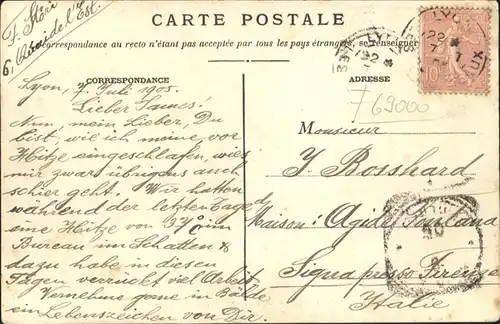 F. Störi
6, Quai de l'Est.
CARTE POSTALE
La correspondance au recto n'étant pas acceptée par tous les pays étrangers, se renseigner
CORRESPONDANCE
Lyon, 7. Juli 1905.
Lieber James!
Nun, mein Lieber, Du
bist, wie ich meine vor
Hitze eingeschlafen, wies
mir zwar übrigens auch
schier geht. Wir hatten
während der letzten Tage
eine Hitze von 37° im
Bureau im Schatten &
dazu habe in diesen
Tagen verrückt viel Arbeit.
Vernehme gerne in Bälde
ein Lebenszeichen von Dir.
ADRESSE
69000
Monsieur
J. Bosshard
Maison: Agide
Signa presso Firenze
Italie
LYON
10